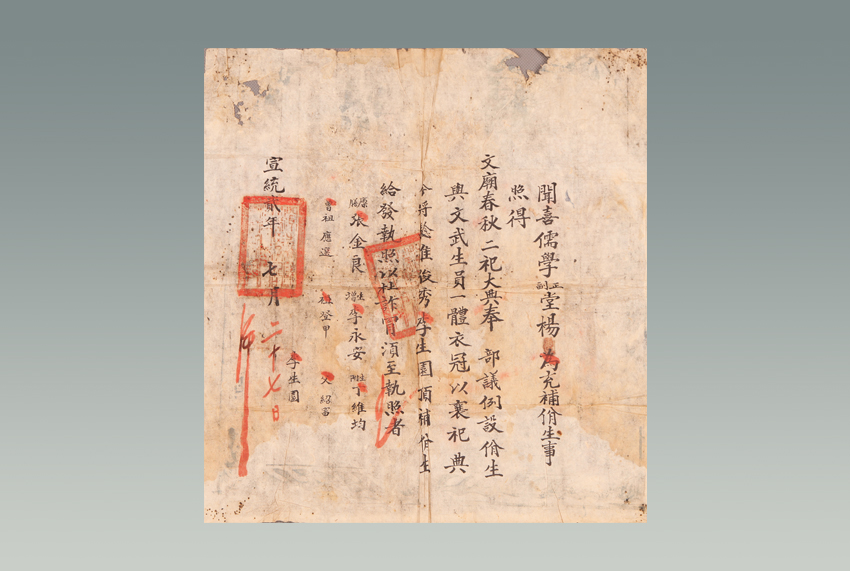 聞喜儒學正副堂楊 為充補佾生事
照得
文廟春秋二祀大典奉 部議例設佾生
與文武生員一體衣冠以襄祀典
今將驗准俊秀李生園頂補佾生
給發執照以杜詐冐須至執照者
廩 張金良 增生李永安 附生丁維均
曾祖應選 祖登甲 父紹
李生園
宣統貳年 七月 二十七日